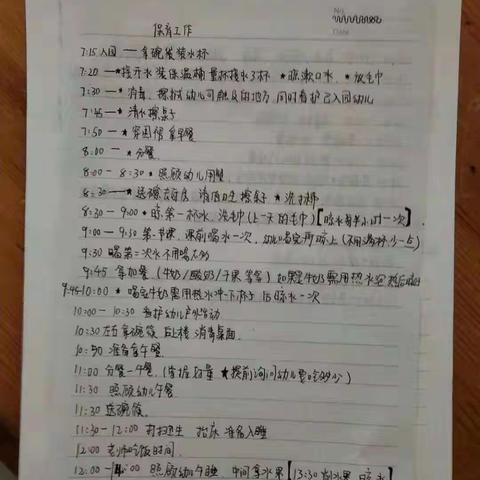 No.
Date
保育工作
7:15 入园 — 拿碗筷装水杯
7:20 —*接开水装保温桶 量杯接水3杯 *晾漱口水. *放毛巾
7:30 —*消毒、擦拭幼儿可触及的地方 同时看护已入园幼儿
7:45 —*清水擦桌子
7:50 —*穿围裙拿早餐
8:00 — *分餐
8:00 - 8:30 *照顾幼儿用餐
8:30 —*送碗去厨房 清洁卫生 擦桌子 *洗
8:30 - 9:00 *晾第一杯水、洗毛巾(上一天的毛巾)【晾水每半小时一次】
9:00 - 9:30 第一节课,课前喝水一次,幼儿喝完再晾上(不用满杯少一点)
9:30 喝第二次水不用喝太多
9:45 拿加餐 (牛奶/酸奶/干果等等) 如果是牛奶需用热水空
9:45-10:00 *喝完牛奶需用热水冲一下杯子 后晾水一次
10:00 - 10:30 看护幼儿户外活动
10:30左右拿碗筷 后上楼 消毒桌面.
10:50 准备拿午餐
11:00 分餐 - 午餐 (掌握好量 *提前询问幼儿要吃多少)
11:30 照顾幼儿午餐
11:30 送碗筷.
11:30 - 12:00 打扫卫生 抬床 准备入睡
12:00 老师吃饭时间.
12:00 - 14:00 照顾幼儿午睡 中间拿水果【13:30 削水果 晾水】